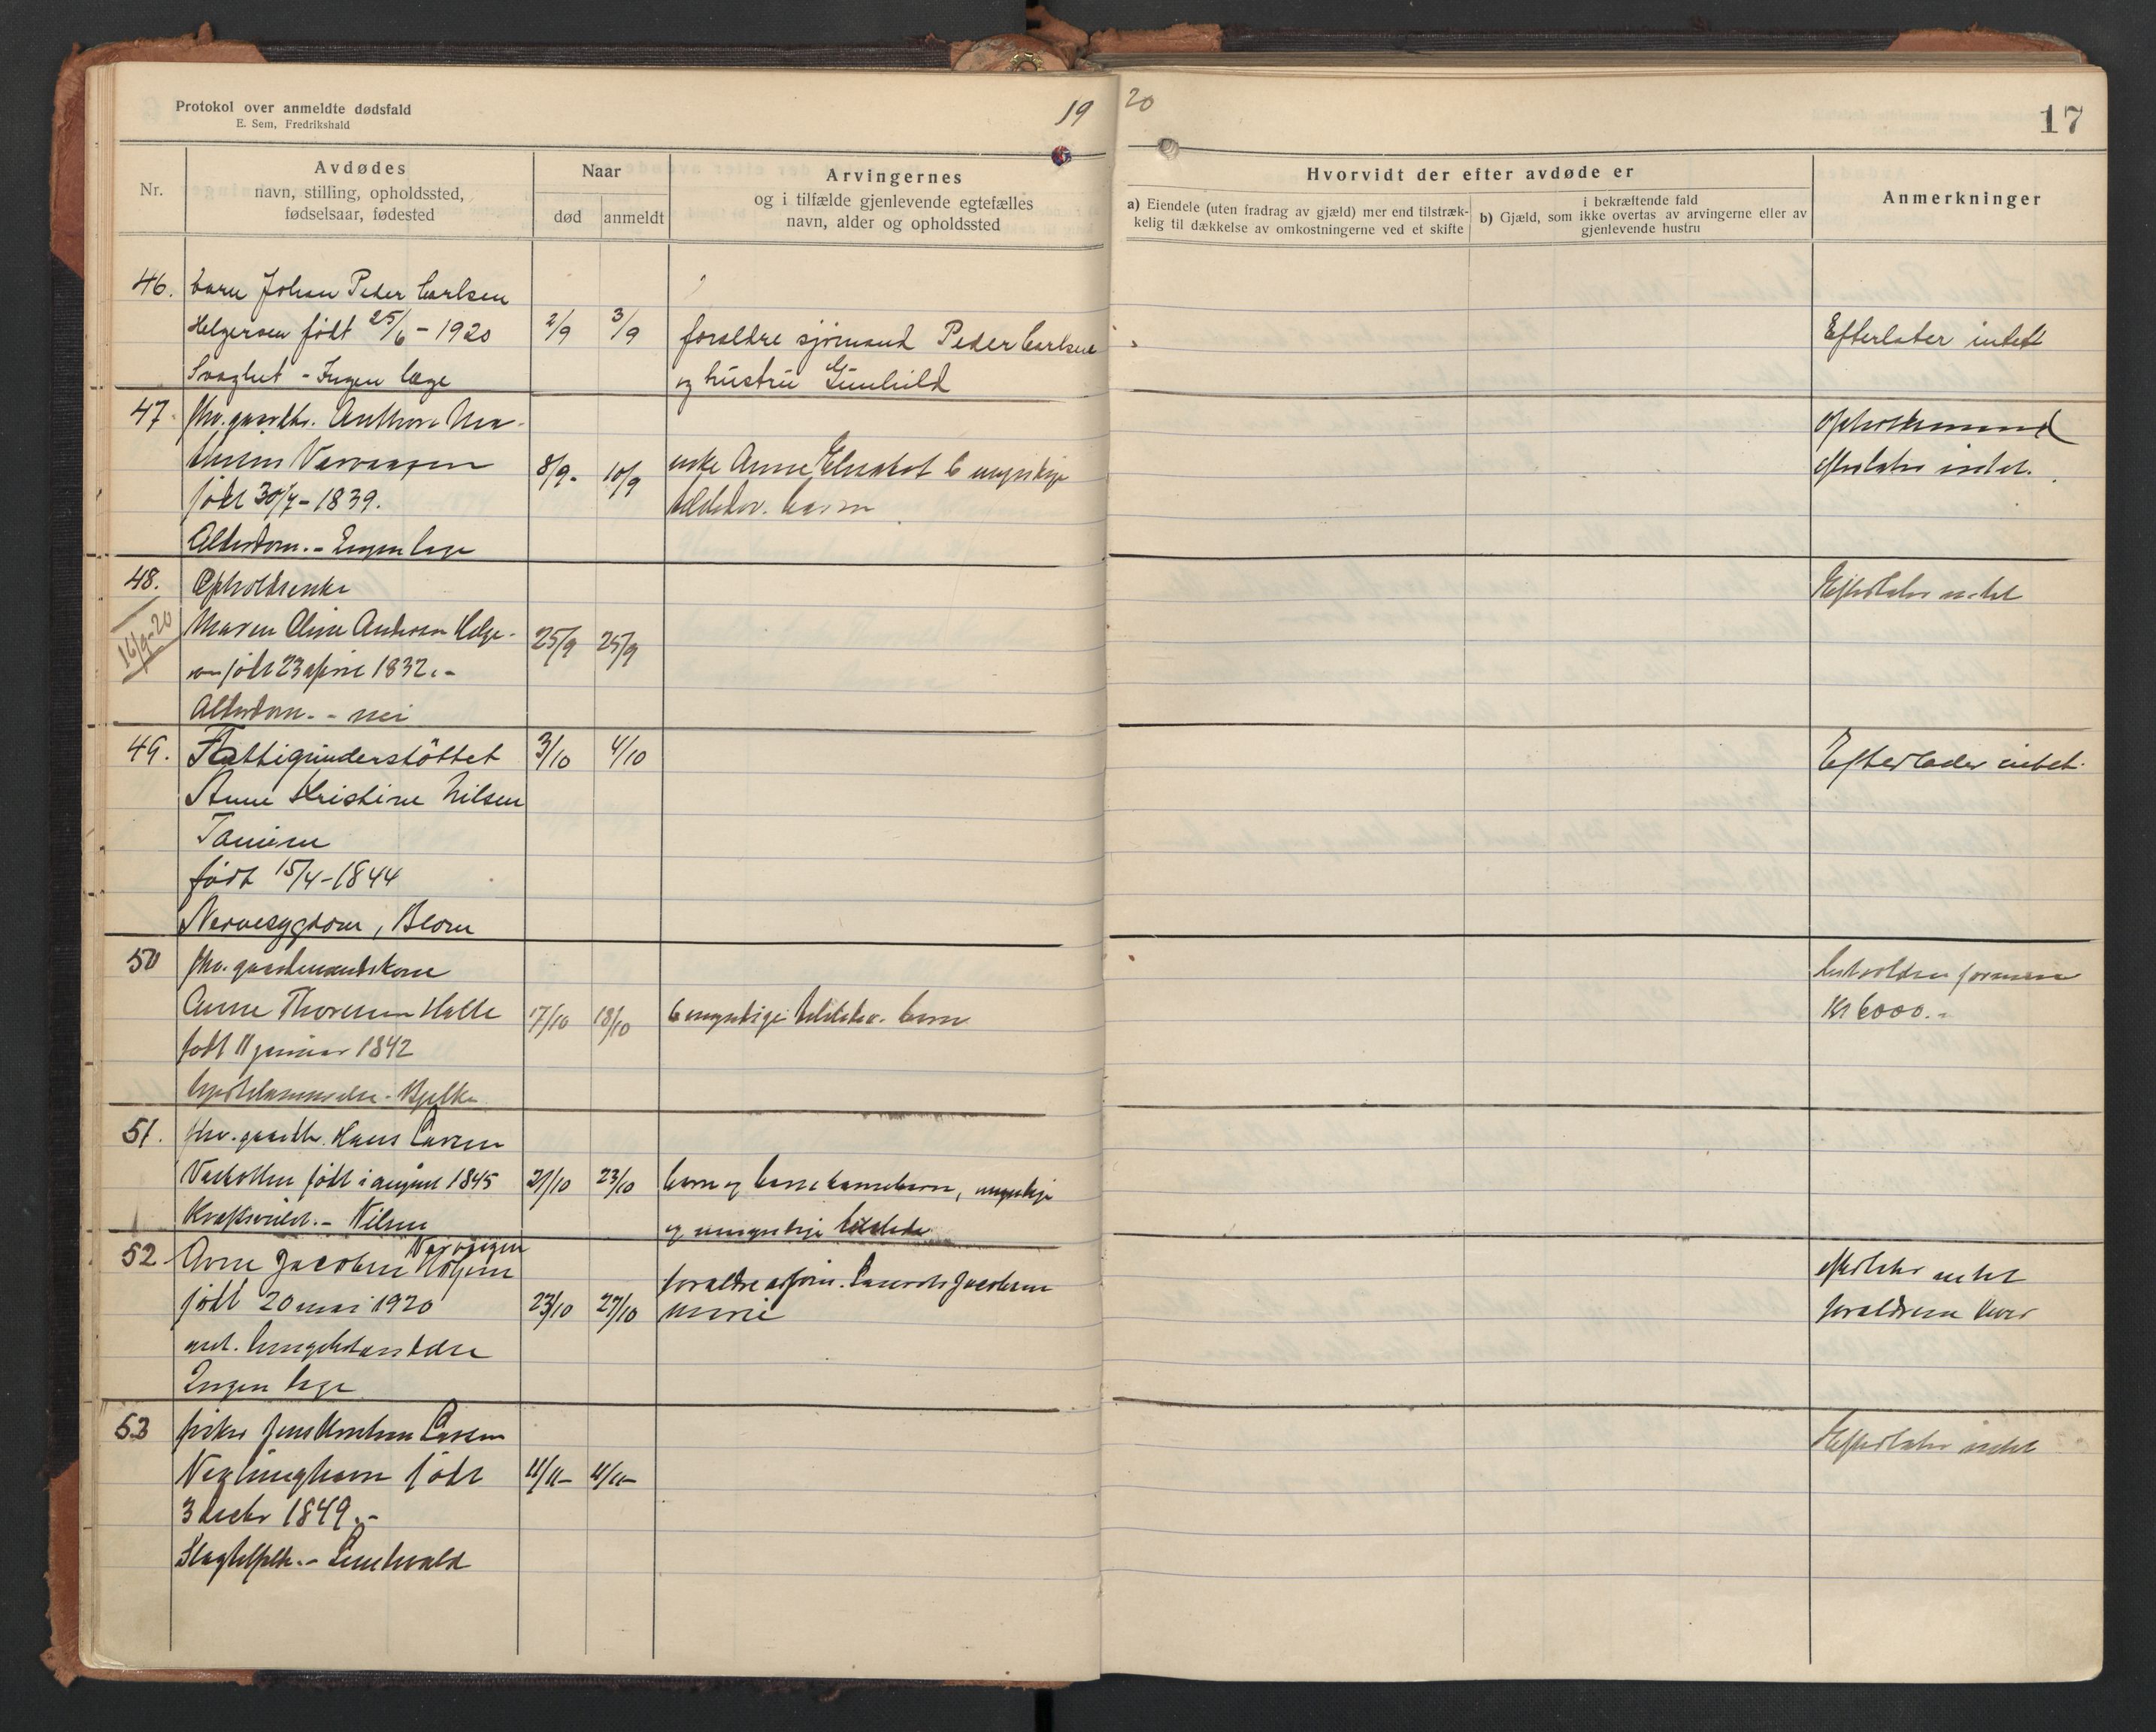 Protokol over anmeldte dødsfald
E. Sem, Fredrikshald
19
20
17
Nr.
Avdødes
navn, stilling, opholdssted,
fødselsaar, fødested
Naar
død
anmeldt
Arvingernes
og i tilfælde gjenlevende egtefælles
navn, alder og opholdssted
Hvorvidt der efter avdøde er
a) Eiendele (uten fradrag av gjæld) mer end tilstræk-
kelig til dækkelse av omkostningerne ved et skifte
i bekræftende fald
b) Gjæld, som ikke overtas av arvingerne eller av
gjenlevende hustru
Anmerkninger
46.
barn Johan Peder Carlsen
Helgersen født 25/6 - 1920
Svaghet - Ingen læge
2/9
3/9
foreldre sjømand Peder Carlsen
og hustru Gunhild
Efterlater intet
47.
fhv. gaardbr.
født 30/7 - 1839.
Alderdom. - Ingen læge
8/9 -
10/9
enke Anne Elisabet 6 myndige
tilstedev. barn
opholdsmand
efterlater intet.
48.
16/9-20
Opholdsenke
Maren Oline Andersen Helge-
sen født 23 april 1832. -
Alderdom. - nei
25/9
25/9
Efterlater intet
49.
Fattigunderstöttet
Anne Kristine Nilsen
født 15/4 - 1844
Nervesygdom, Blom
3/10
4/10
Efterlader intet.
50
fhv. gaardmandskone
Anne Thoresen Halle
født 11 januar 1842
Hjertelammelse - Bjelke
17/10
18/10
6 myndige tilstedev. barn
Kr 6000. -
51.
fhv. gaardbr. Hans Larsen
født i august 1845
- Nilsen
21/10
23/10
barn og barnebarn, myndige
og umyndige
52
Arne Jacobsen
født 20 mai 1920
ant. lungebetændelse
Ingen læge
23/10
27/10
foreldre
Marie
efterlater intet
foreldrene lever
53
fisker Jens Larsen
født
3 decbr 1849. -
11/11 -
11/11 -
Efterlater intet